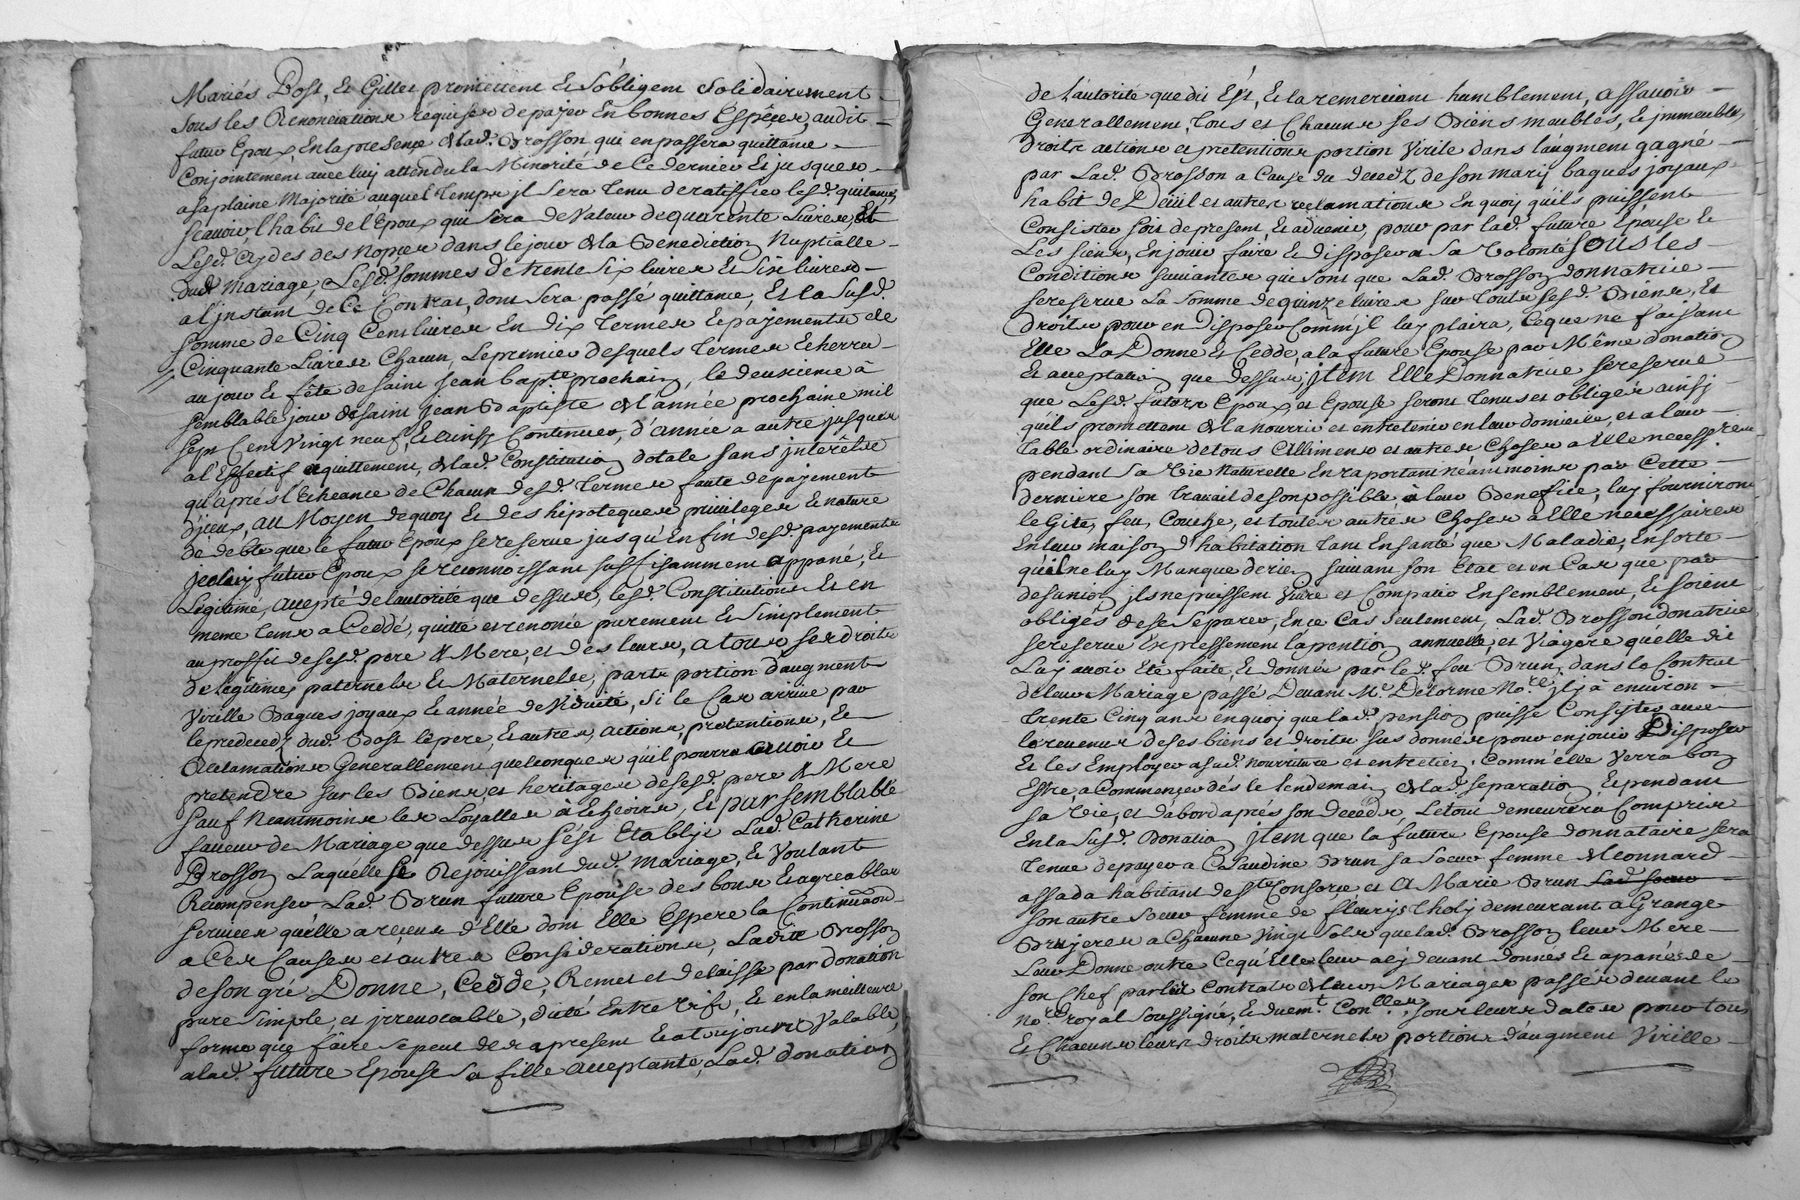 Mariés Dost, et Gillet promettent et s'obligent solidairement
sous les Renonciations requises de payer en bonnes Espêces, audit
futur Epoux, En la presence de lad. Brosson qui en passera quittance
Conjointement avec luy attendu la Minorité de Ce dernier Et jusques
a sa plaine Majorité auquel Temps jl sera tenu de ratiffier lesd. quitances,
scauoir l'habit de l'Epoux qui sera de Valeur de quarente Livres, Et
Lesd. des nopces dans le jour de la Benediction Nuptialle
dud. Mariage, Lesd. sommes de trente six livres Et six livres
a l'jnstant de Ce Contrat, dont sera passé quittance, Et la susd.
somme de Cinq Cent livres En dix Termes Et payements de
Cinquante Livres Chacun, Le premier desquels Termes Echerra
au jour et fête de saint jean bapte prochain, le deuxieme à
semblable jour de saint jean Baptiste de l'année prochaine mil
sept Cent Vingt neuf, Et ainsy Continuer, d'année a autre jusques
a l'Effectif aquittement, de lad. Constitution dotale sans jnterêts
qu'aprés l'Echeance de Chacun desd. Termes faute de payement
d'jceux, au Moyen de quoy Et des hipoteques priuileges Et nature
de debte que le futur Epoux se reserue jusqu'En fin desd. payements
jceluy futur Epoux se reconnoissant suffisamment appané, Et
Legitimé, accepté de l'autorité que dessus, lesd. Constitutions Et en
meme tems a Ceddé, quitté et renoncé purement Et simplement
au proffit de sesd. pere & Mere, et des leurs, a tous ses droits
de legitimes paternels Et Maternels, part portion d'augment
Virille Bagues joyaux Et année de Viduité, si le Cas arrive par
le predecedz dud. Dost le pere, Et autres, actions, pretentions, Et
Reclamations Generallement quelconques qu'il pourra auoir Et
pretendre sur les Biens et heritages de sesd. pere & Mere
sauf Neantmoins les Loyalles à Echeoirs, Et par semblable
faueur de Mariage que dessus s'est Etablje Lad. Catherine
Brosson Laquélle se Rejouissant dud. Mariage, Et Voulant
Recompenser Lad. Brun future Epouse des bons Et agreables
seruices qu'élle a reçeus d'Elle dont Elle Espere la Continuaon
a Ces Causes et autres Considerations, Ladite Brosson
de son gré Donne, Cedde, Remet et delaisse par donation
pure simple, et jrreuocable, ditté Entre vifs, Et en la meilleure
forme que faire se peut dez a present Et a toujours Valable,
a lad. future Epouse sa fille acceptante, Lad. donation
de l'autorité que dit Est, Et la remerciant humblement, assauoir
Generallement, Tous et Chacuns ses Biens meublés, Et jmmeubles,
Droits actions et pretentions portion Virile dans l'augment gagné
par Lad. Brosson a Cause du decedz de son mary bagues joyaux
habit de Deüil et autres reclamations En quoy qu'ils puissent
Consister soit de present Et aduenir, pour par lad. future Epouse Et
Les siens, En jouir faire Et disposer a sa Volonté sous les
Conditions suivantes qui sont que Lad. Brosson donnatrice
se reserue La somme de quinze livres sur Tous sesd. Biens, Et
droits pour en Disposer Comm'jl luy plaira, Ce que ne faisant
Elle La Donne Et Cedde, a la future Epouse par Même donation
Et acceptation que dessus, jtem Elle Donnatrice se reserue
que Lesd. futurs Epoux, et Epouse seront Tenus et obligés ainsj
qu'ils promettent de la nourrir et entretenir en leur domicile, et a leur
Table ordinaire de tous Allimens et autres Choses a Elle necessres
pendant sa Vie Naturelle En raportant néantmoins par Cette
derniere son Travail de son possible à leur Benefice, luy fourniront
le Gite, feu, Couche, et toutes autrés Choses a Elle necessaires
En leur maison d'habitation Tant En santé que Maladie, En sorte
qu'il ne luy Manque de rien suivant son Etat et en Cas que par
desunion jls ne puissent Vivre et Compatir Ensemblement, Et soient
obligés de se Separer, En ce Cas seulement, Lad. Brosson donatrice
se reserue Expressement la pention annuelle, et Viagere quelle dit
Luy auoir Eté faite, Et donnée par led. feu Brun, dans le Contrat
de leur Mariage passé Devant Me. Delorme Nore, jl y à environ
trente Cinq ans en quoy que lad. pension puisse Consister auec
les reuenus de ses biens et droits sus donnés pour en jouir Disposer
Et les Employer a sad. nourriture et entretien, Comm'élle Verra bon
Estre, a Commencer dés le lendemain de lad. separation, Et pendant
sa Vie, et d'abord aprés son decedz, Le tout demeurera Compris
En la susd. Donation, jtem que la future Epouse donnataire sera
Tenue de payer a Claudine Brun sa Soeur femme de Leonnard
assada habitant de Ste Consorce et A Marie Brun Lad. soeur
son autre Soeur femme de fleurys Tholy demeurant a Grange
Bruyeres a Chacune Vingt Sols que lad. Brosson leur Mere
Leur Donne outre Ce qu'Elle leur a cj devant donnés Et apanés de
son Chef par les Contrats de leurs Mariages passés devant le
Nore royal soussigné, Et duemt. Conllez, sous leurs dates pour tous
Et Chacuns leurs droits maternels portions d'augment Virille